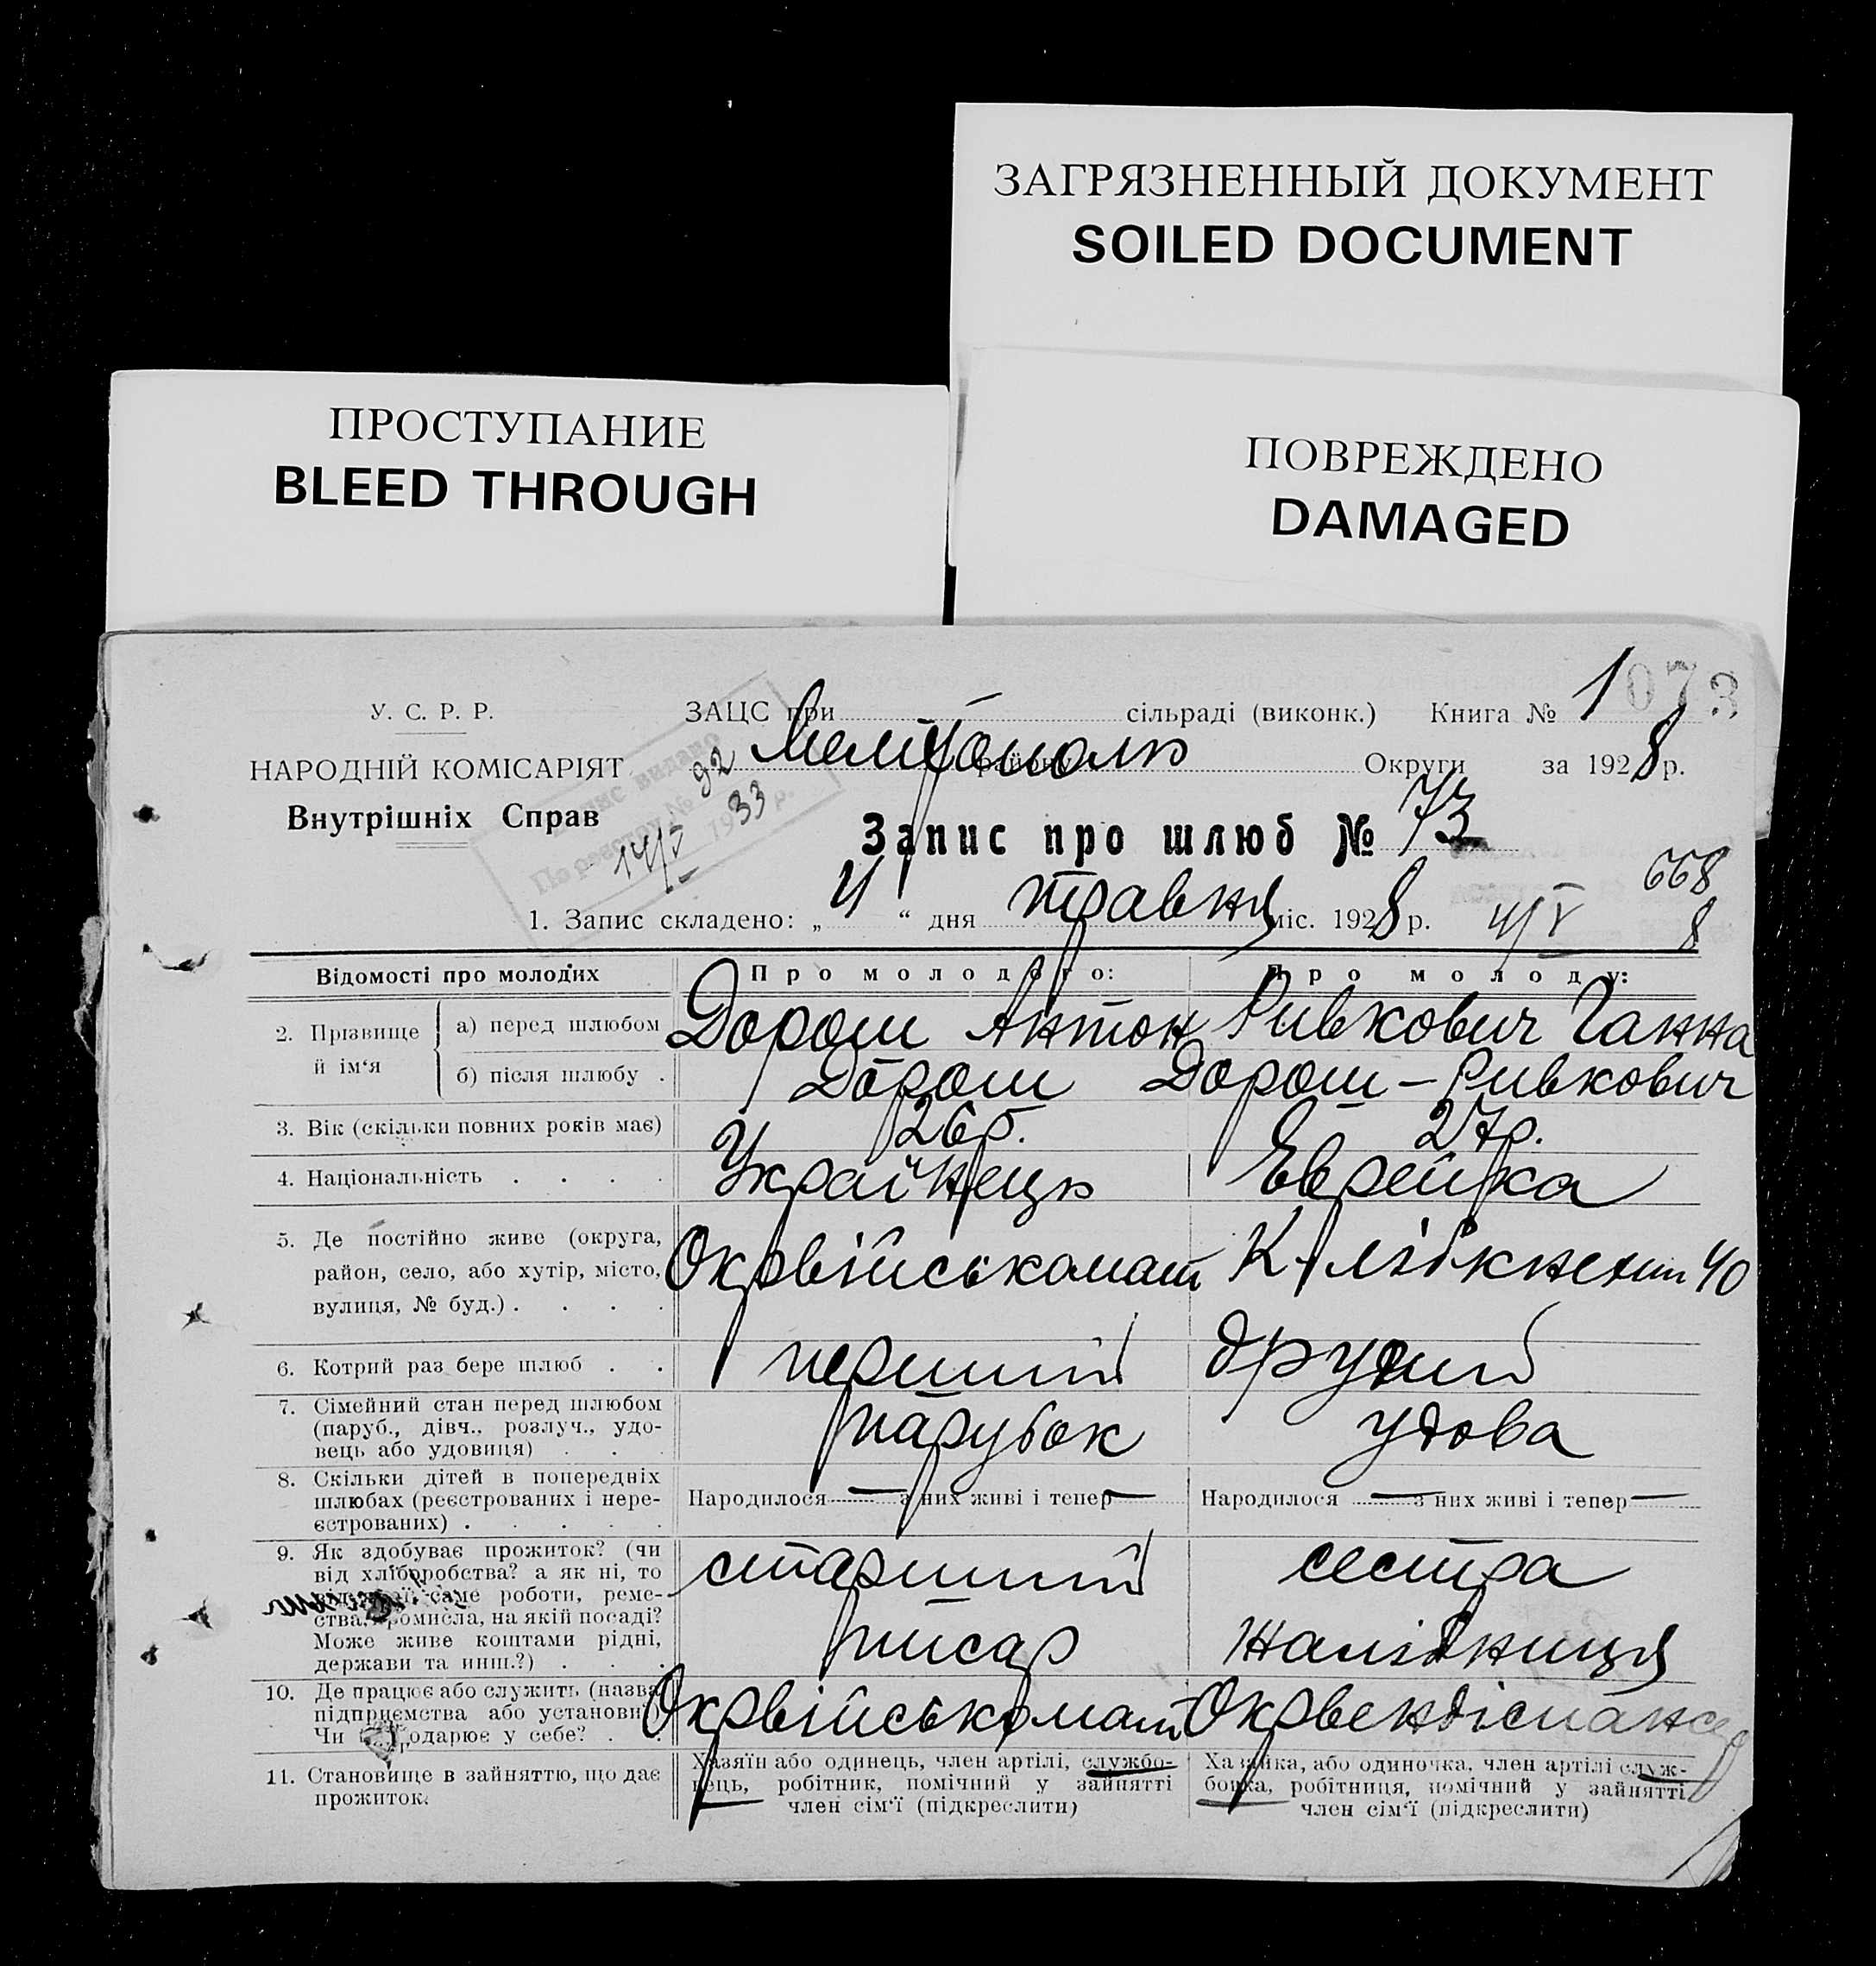 ЗАГРЯЗНЕННЫЙ ДОКУМЕНТ
SOILED DOCUMENT
ПРОСТУПАНИЕ
BLEED THROUGH
ПОВРЕЖДЕНО
DAMAGED
У. С. Р. Р.
НАРОДНІЙ КОМІСАРІЯТ
Внутрішніх Справ
ЗАЦС при сільраді (виконк.) Книга № 1 073
Мелітополь Округи за 1928 р.
92
14/V 1933 р.
Запис про шлюб № 73
668
1. Запис складено: „4“ дня травня міс. 1928 р. 4/V 8
Відомості про молодих
Про молодого:
Про молоду:
2. Прізвище й ім‘я
а) перед шлюбом
Дорош Антон
Ривкович Ганна
б) після шлюбу .
Дорош
Дорош-Ривкович
3. Вік (скільки повних років має)
26 р.
27 р.
4. Національність . . . .
Українець
Еврейка
5. Де постійно живе (округа,
район, село, або хутір, місто,
вулиця, № буд.) . . . .
Окрвійськомат
К. 40
6. Котрий раз бере шлюб . .
перший
другий
7. Сімейний стан перед шлюбом
(паруб., дівч., розлуч., удо-
вець або удовиця) . . .
парубок
удова
8. Скільки дітей в попередніх
шлюбах (реєстрованих і нере-
єстрованих) . . . . .
Народилося — з них живі і тепер —
Народилося — з них живі і тепер —
9. Як здобуває прожиток? (чи
від хліборобства? а як ні, то
саме роботи, реме-
ства, промисла, на якій посаді?
Може живе коштами рідні,
держави та инш.?) . . .
старший
писар
сестра
жалібниця
10. Де працює або служить (назва
підприємства або установи)
Чи одарює у себе? . .
Окрвійськомат
Окрвендіспансер
11. Становище в зайняттю, що дає
прожиток.
Хазяїн або одинець, член артілі, службо-
вець, робітник, помічний у зайнятті
член сім‘ї (підкреслити)
Хазяйка, або одиночка, член артілі служ-
бовка, робітниця, помічний у зайнятті
член сім‘ї (підкреслити)